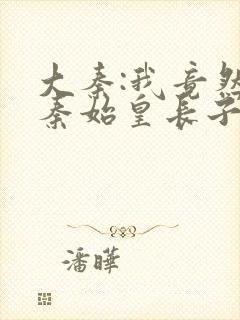 大秦:我竟然
秦始皇长子
潘曄